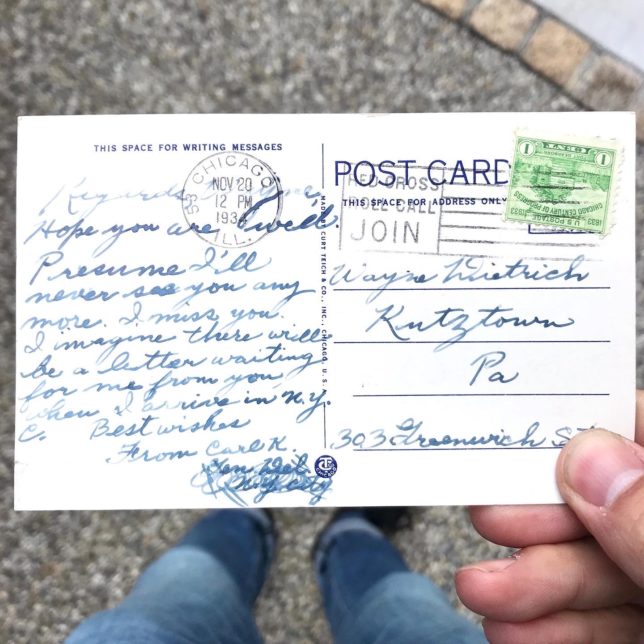 THIS SPACE FOR WRITING MESSAGES
Regards to
Hope you are well.
Presume I'll
never see you any
more. I miss you.
I imagine there will
be a letter waiting
for me from you
when I arrive in N.Y.
C. Best wishes
From Carl K.
CHICAGO
NOV 20
12 PM
ILL.
MADE BY CURT TEICH & CO., INC., CHICAGO, U.S.A.
POST CARD
THIS SPACE FOR ADDRESS ONLY
RED CROSS
ROLL CALL
JOIN
1 CENT 1
U.S. POSTAGE
1833 CHICAGO CENTURY OF PROGRESS 1933
Wayne Dietrich
Kutztown
Pa
303 Greenwich St.